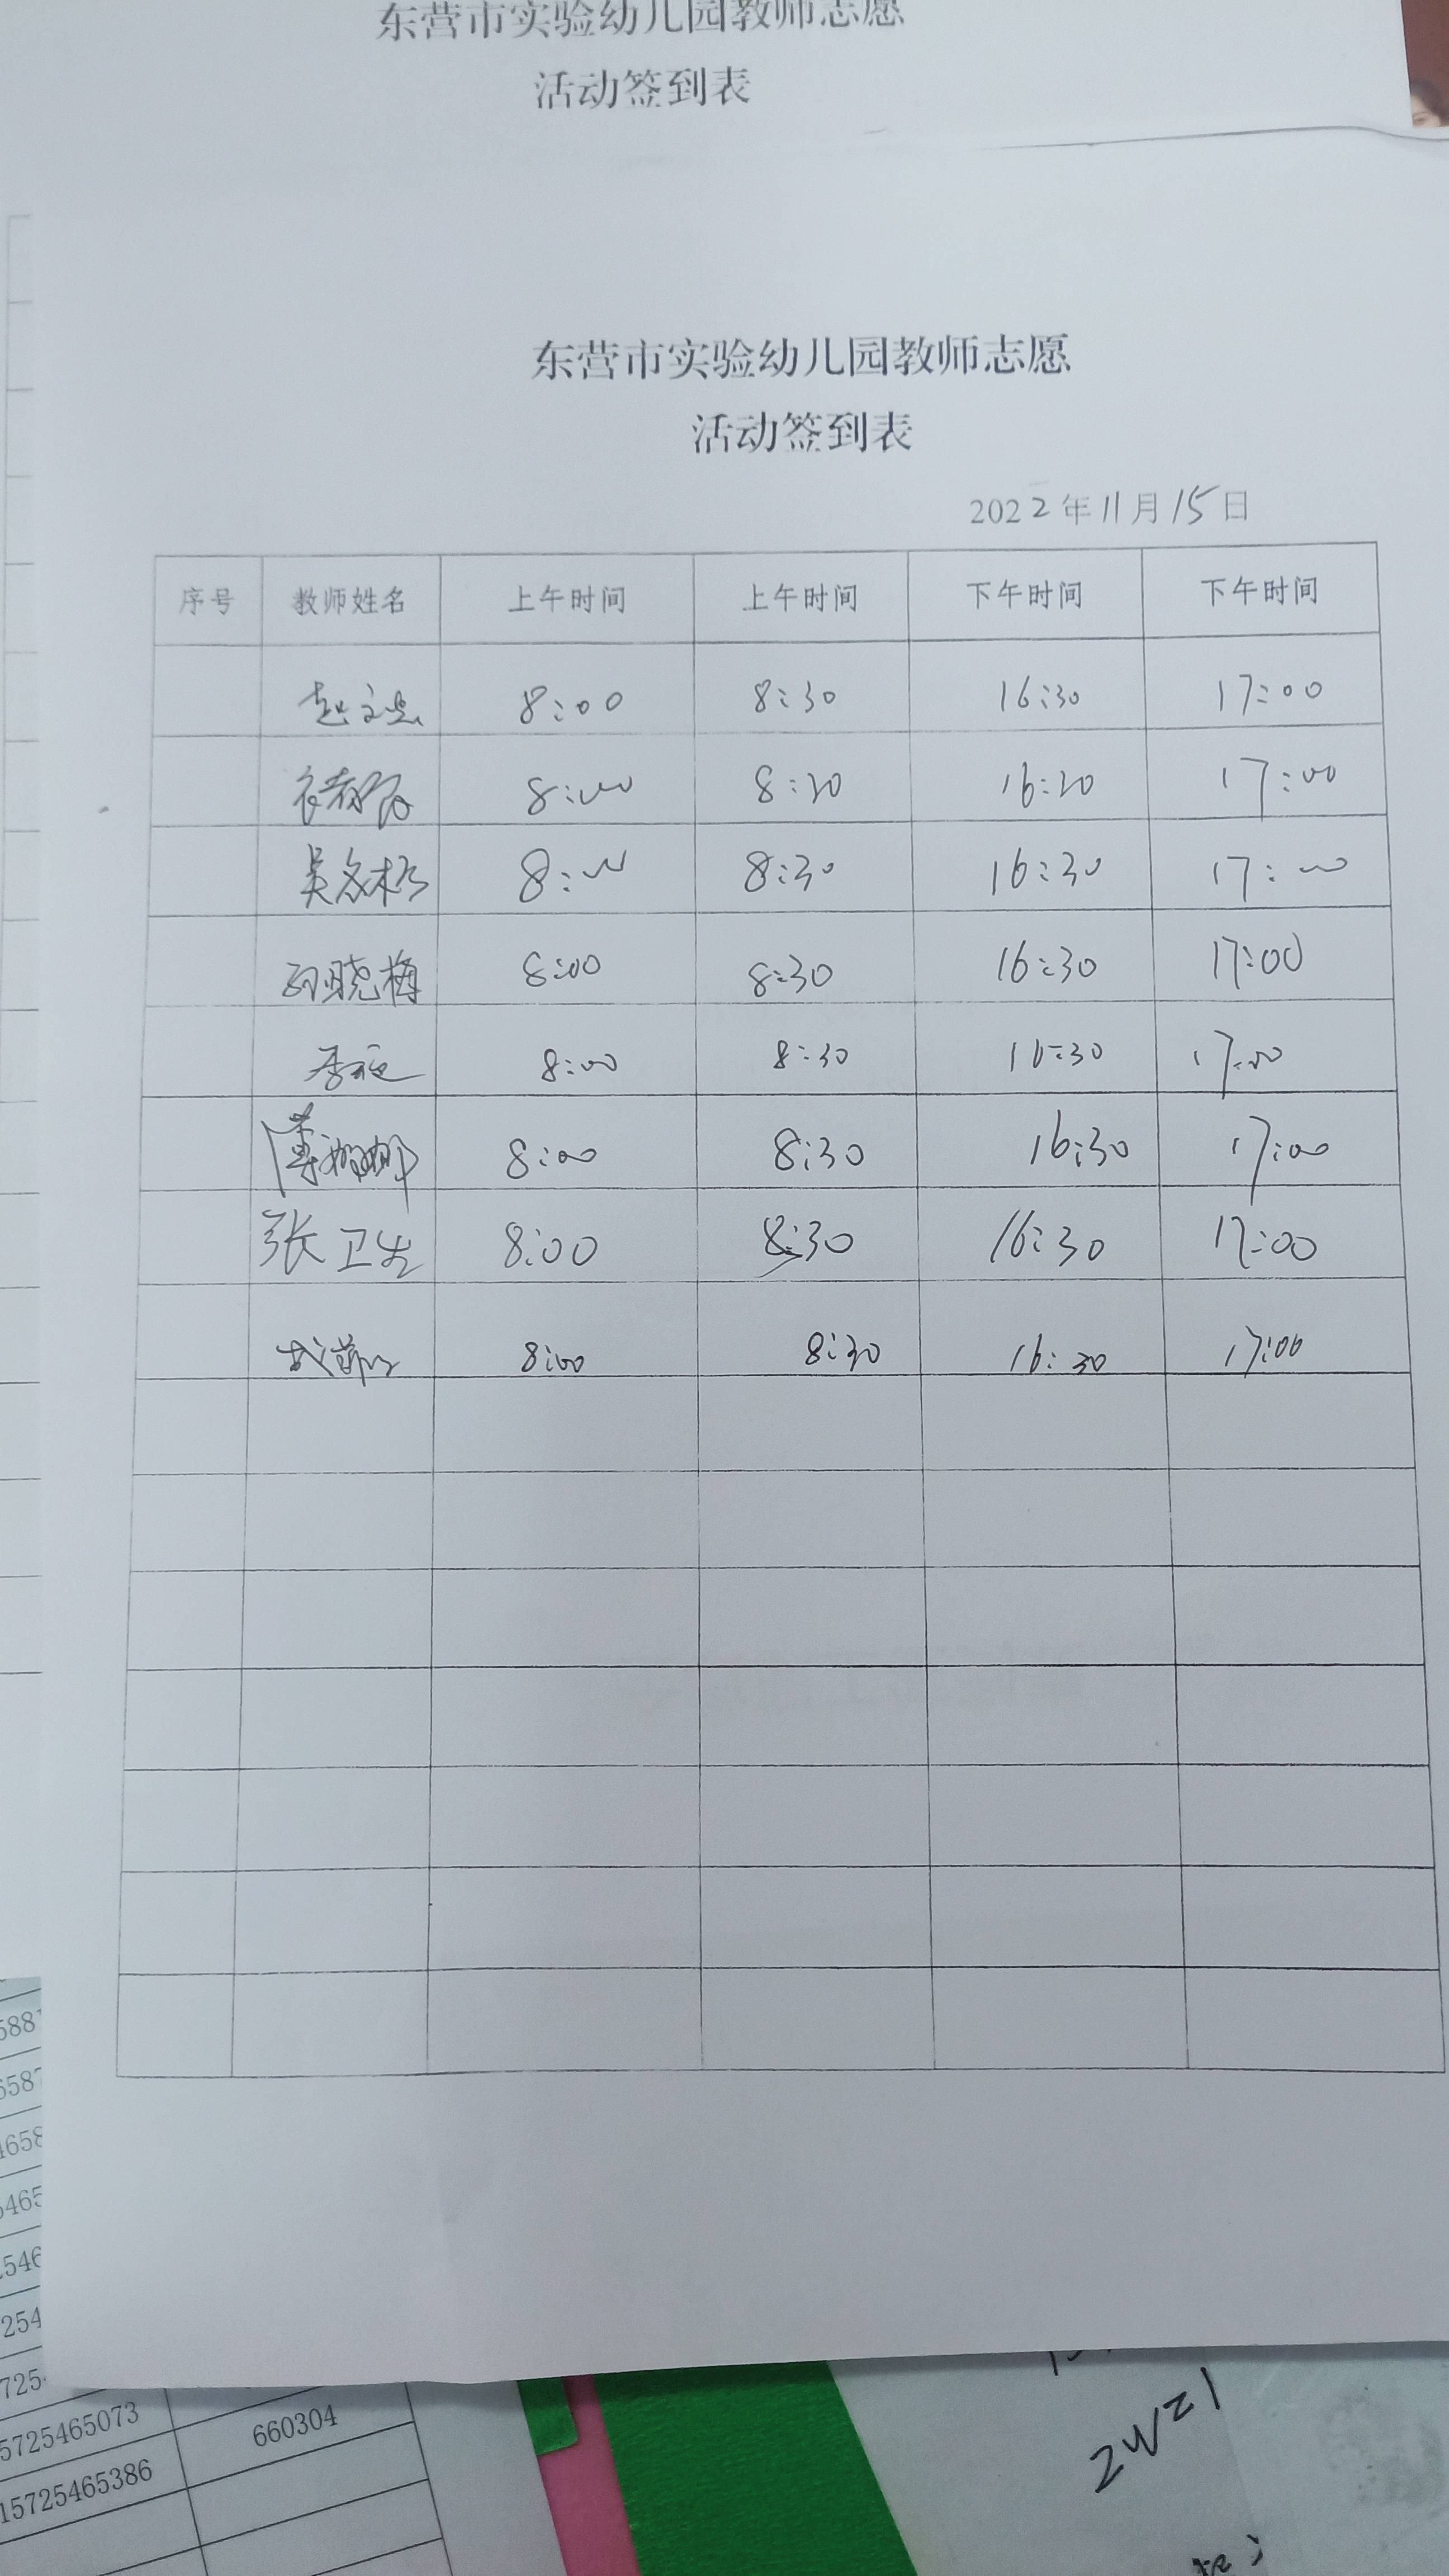 东营市实验幼儿园教师志愿
活动签到表
东营市实验幼儿园教师志愿
活动签到表
2022年11月15日
序号 教师姓名 上午时间 上午时间 下午时间 下午时间
8:00 8:30 16:30 17:00
8:00 8:30 16:30 17:00
8:00 8:30 16:30 17:00
孙晓梅 8:00 8:30 16:30 17:00
8:00 8:30 16:30 17:00
薄娜娜 8:00 8:30 16:30 17:00
张卫生 8:00 8:30 16:30 17:00
8:00 8:30 16:30 17:00
5725465073 660304
15725465386